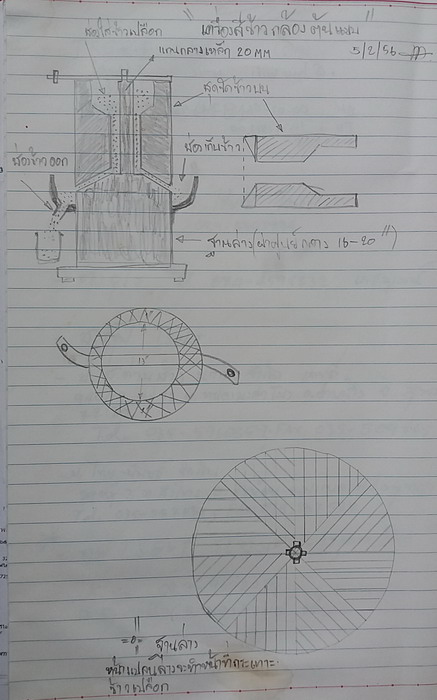 "เครื่องสีข้าวกล้องต้นแบบ"
5/2/56
ช่องใส่ข้าวเปลือก
แกนกลางเหล็ก 20 MM
ชุดขัดข้าวบน
ช่องข้าวออก
ช่องเก็บข้าว
ฐานล่าง (ผ่าศูนย์กลาง 16-20")
13"
ฐานล่าง
หน้าแปลนล่างจะทำหน้าที่กระเทาะ
ข้าวเปลือก